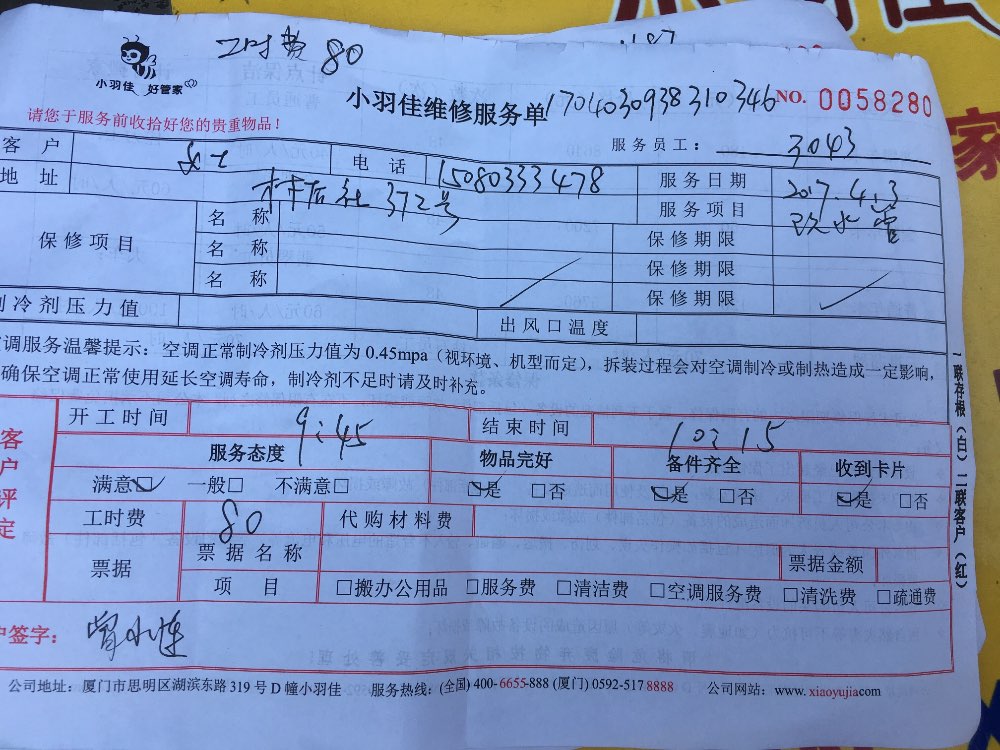 工时费 80
小羽佳 好管家
小羽佳维修服务单 170403093831034６ NO. 0058280
请您于服务前收拾好您的贵重物品！
服务员工： 3043
客户 女士 电话 15080333478 服务日期 2017.4.3
地址 林后社 372号 服务项目 改水管
保修项目 名称 保修期限
名称 保修期限
名称 保修期限
制冷剂压力值 出风口温度
空调服务温馨提示：空调正常制冷剂压力值为 0.45mpa（视环境、机型而定），拆装过程会对空调制冷或制热造成一定影响，
确保空调正常使用延长空调寿命，制冷剂不足时请及时补充。
客户评定
开工时间 9:45 结束时间 10:15
服务态度 物品完好 备件齐全 收到卡片
满意☑ 一般□ 不满意□ ☑是 □否 ☑是 □否 ☑是 □否
工时费 80 代购材料费
票据 票据名称 票据金额
项目 □搬办公用品 □服务费 □清洁费 □空调服务费 □清洗费 □疏通费
户签字：
公司地址：厦门市思明区湖滨东路 319 号 D 幢小羽佳 服务热线：(全国) 400-6655-888 (厦门) 0592-517 8888 公司网站：www. xiaoyujia.com
一联存根（白）二联客户（红）
家